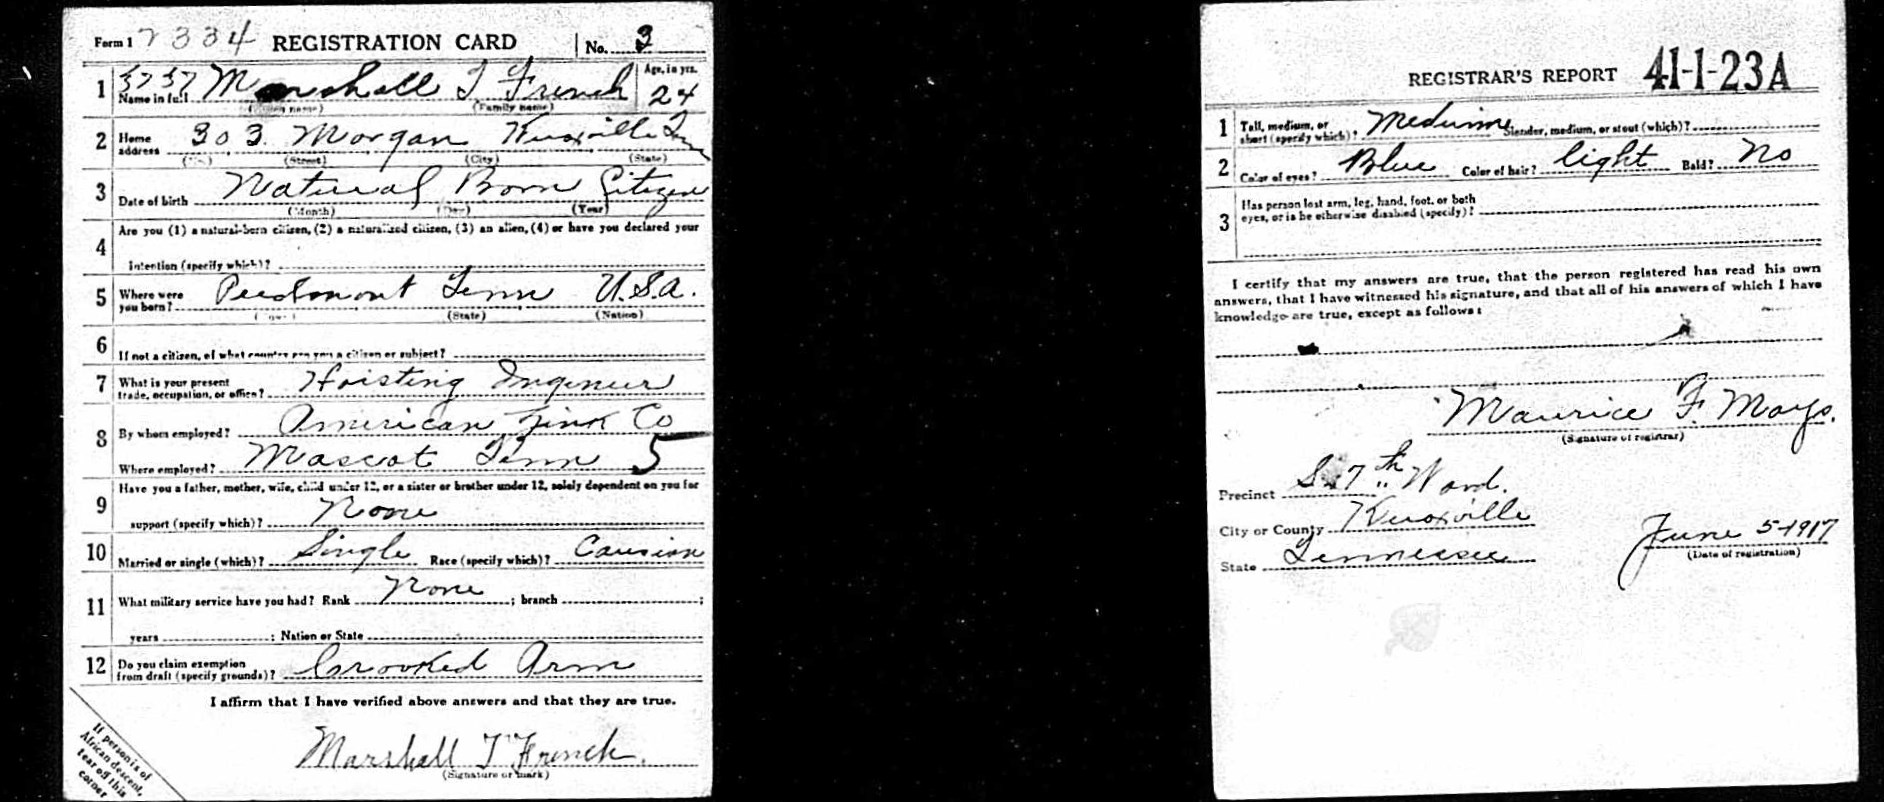 Form 1 2334 REGISTRATION CARD No. 3
1 3737 Name in full Marshall T French Age, in yrs. 24
(Given name) (Family name)
2 Home address 303 Morgan Knoxville Tenn
(No.) (Street) (City) (State)
3 Date of birth Natural Born Citizen
(Month) (Day) (Year)
4 Are you (1) a natural-born citizen, (2) a naturalized citizen, (3) an alien, (4) or have you declared your
intention (specify which)?
5 Where were you born? Piedmont Tenn U.S.A.
(Town) (State) (Nation)
6 If not a citizen, of what country are you a citizen or subject?
7 What is your present trade, occupation, or office? Hoisting Ingineur
8 By whom employed? American Zink Co
Where employed? Mascot Tenn 5
9 Have you a father, mother, wife, child under 12, or a sister or brother under 12, solely dependent on you for
support (specify which)? None
10 Married or single (which)? Single Race (specify which)? Causian
11 What military service have you had? Rank None ; branch ;
years ; Nation or State
12 Do you claim exemption from draft (specify grounds)? Crooked Arm
I affirm that I have verified above answers and that they are true.
Marshall T French.
(Signature or mark)
If person is of
African descent,
tear off this
corner
REGISTRAR'S REPORT 41-1-23A
1 Tall, medium, or short (specify which)? Medium Slender, medium, or stout (which)?
2 Color of eyes? Blue Color of hair? light Bald? No
3 Has person lost arm, leg, hand, foot, or both
eyes, or is he otherwise disabled (specify)?
I certify that my answers are true, that the person registered has read his own
answers, that I have witnessed his signature, and that all of his answers of which I have
knowledge are true, except as follows:
Maurice F. Mays.
(Signature of registrar)
Precinct 7th Ward.
City or County Knoxville
State Tennessee
June 5-1917
(Date of registration)